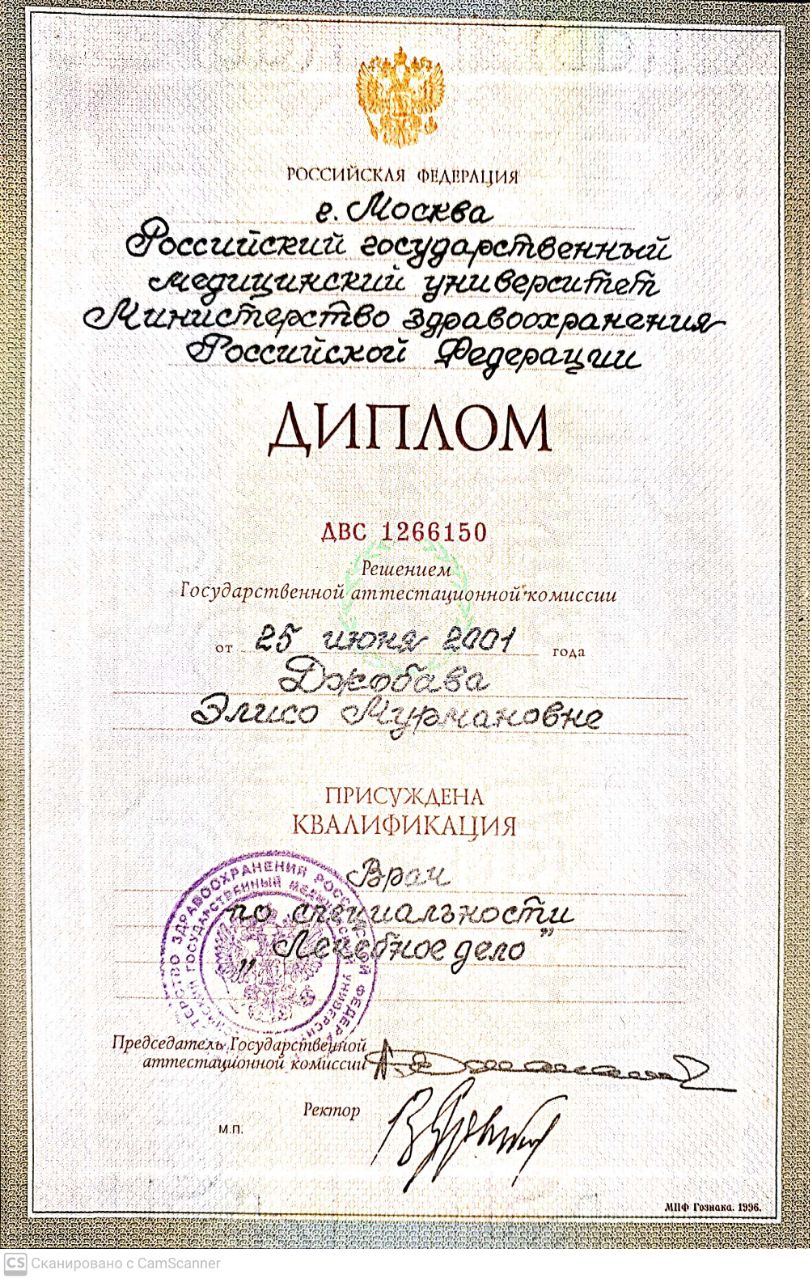 РОССИЙСКАЯ ФЕДЕРАЦИЯ
г. Москва
Российский государственный
медицинский университет
Министерство здравоохранения
Российской Федерации
ДИПЛОМ
ДВС 1266150
Решением
Государственной аттестационной комиссии
от 25 июня 2001 года
Джобава
Элисо Мурмановне
ПРИСУЖДЕНА
КВАЛИФИКАЦИЯ
Врач
по специальности
„Лечебное дело”
Председатель Государственной
аттестационной комиссии
Ректор
М.П.
МПФ Гознака. 1996.
CS Сканировано с CamScanner